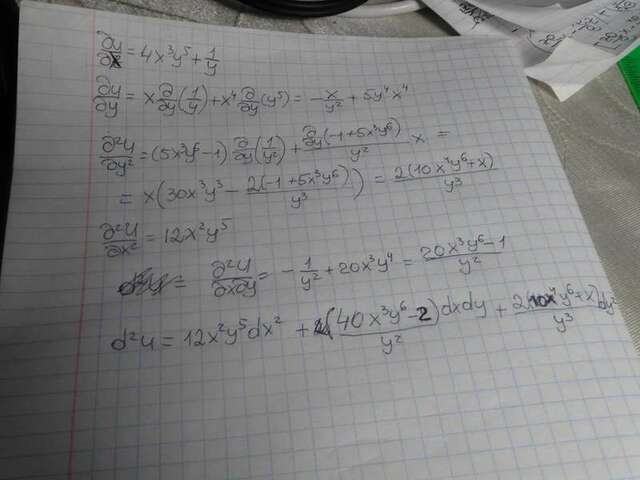 ∂y/∂x = 4x³y⁵ + 1/y
∂y/∂y = x ∂/∂y (1/y) + x⁴ ∂/∂y (y⁵) = -x/y² + 5y⁴x⁴
∂²U/∂y² = (5x³y⁶ - 1) ∂/∂y (1/y²) + ∂/∂y (-1 + 5x³y⁶)/y² x =
= x(30x³y³ - 2(-1 + 5x³y⁶)/y³) = 2(10x⁴y⁶ + x)/y³
∂²U/∂x² = 12x²y⁵
= ∂²U/∂x∂y = -1/y² + 20x³y⁴ = (20x³y⁶ - 1)/y²
d²U = 12x²y⁵dx² + (40x³y⁶ - 2)/y² dxdy + 2(10x⁴y⁶ + x)/y³ dy²